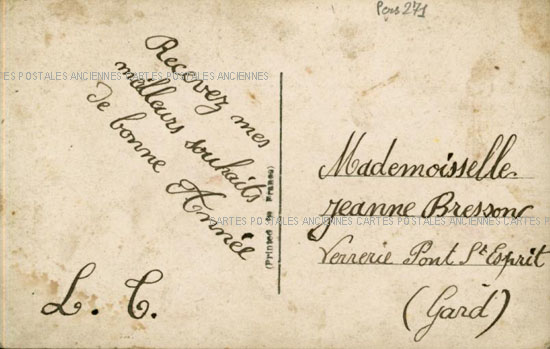 Pers 271
Recevez mes
meilleurs souhaits
de bonne Année
L. C.
(Printed in France)
Mademoisselle
Jeanne Bresson
Verrerie Pont St Esprit
(Gard)
CARTES POSTALES ANCIENNES CARTES POSTALES ANCIENNES
CARTES POSTALES ANCIENNES CARTES POSTALES ANCIENNES